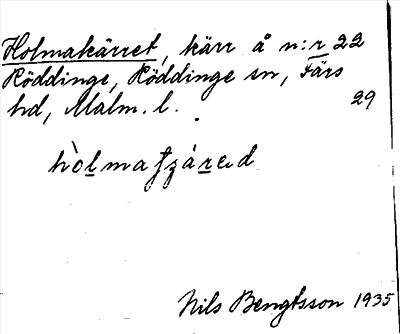 Holmakärret, kärr å n:r 22
Röddinge, Röddinge sn, Färs
hd, Malm. l. 29
Nils Bengtsson 1935